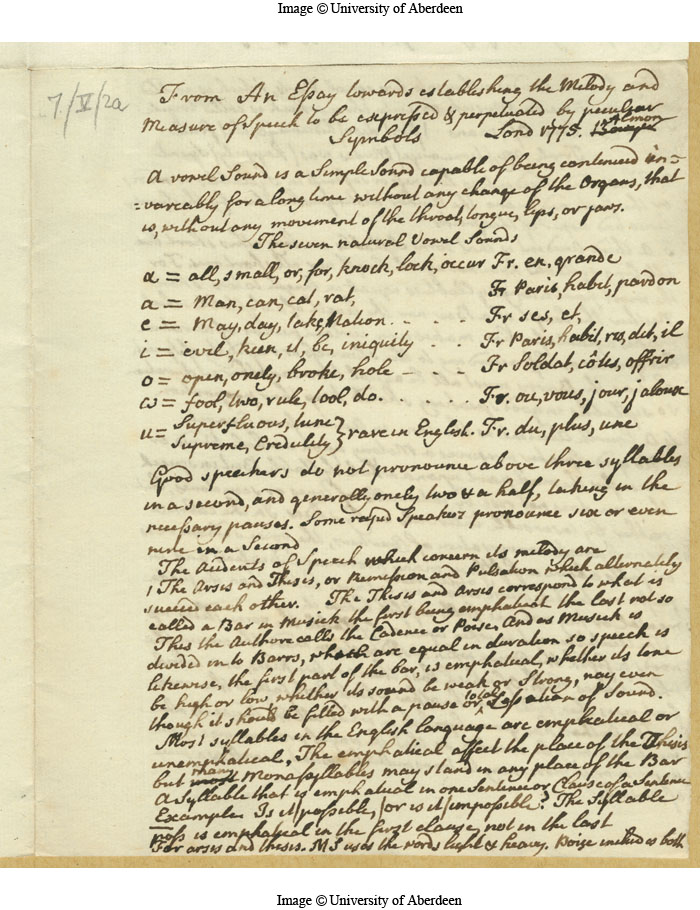 Image © University of Aberdeen
7/V/2a
From An Essay towards establishing the Melody and
Measure of Speech to be expressed & perpetuated by peculiar
Symbols Lond 1775. Almon
A vowel Sound is a Simple Sound capable of being continued in=
=vareably for a long time without any change of the Organs, that
is, without any movement of the throat, tongue, lips, or jaws.
The seven natural Vowel Sounds
α = all, small, or, for, knock, lock, occur Fr. en, grande
a = Man, can, cat, rat, Fr Paris, habit, pardon
e = May, day, take, Nation . . . . Fr ses, et,
i = evil, keen, it, be, iniquity . . Fr Paris, habit, ris, dit, il
o = open, onely, broke, hole - - . Fr Soldat, côtes, offrir
ω = fool, two, rule, tool, do. . . . . . Fr. ou, vous, jour, jaloux
u = Superfluous, tune
Supreme, Credulity } rare in English. Fr. du, plus, une
Good speakers do not pronounce above three syllables
in a second, and generally onely two & a half, taking in the
necessary pauses. Some rapid Speakers pronounce six or even
nine in a Second
The Accidents of Speech which concern its melody are
1 The Arsis and Thesis, or Remission and Pulsation which alternately
succeed each other. The Thesis and Arsis correspond to what is
called a Bar in Musick the first being emphatical the last not so
This the Authore calls the Cadence or Poise. And as Musick is
divided in to Barrs, which are equal in duration so speech is
likewise, the first part of the bar, is emphatical, whether its tone
be high or low, whether its sound be weak or Strong, nay even
though it should be filled with a pause or total Cessation of Sound.
Most syllables in the English language are emphatical or
unemphatical, The emphatical affect the place of the Thesis
but many monasyllables may stand in any place of the Bar
A Syllable that is emphatical in one Sentence or Clause of a Sentence
Example. Is it possible, or is it impossible? The Syllable
poss is emphatical in the first clause, not in the last
For arsis and thesis. MS uses the words light & heavy. Poize includes both
Image © University of Aberdeen